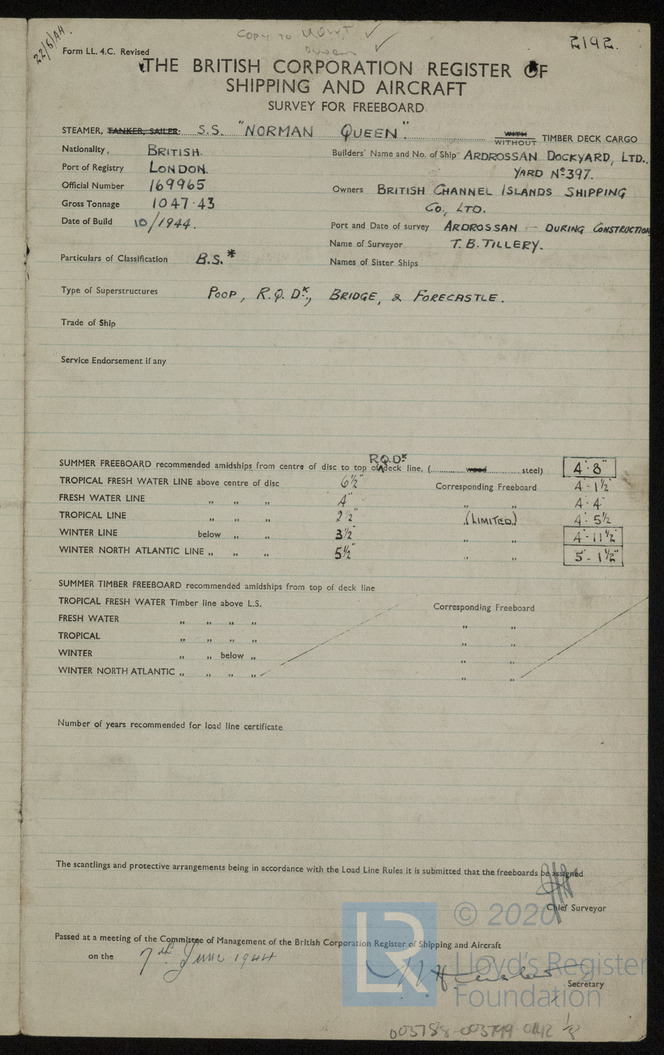 22/5/44.
COPY TO
2192.
Form LL. 4.C. Revised
THE BRITISH CORPORATION REGISTER OF
SHIPPING AND AIRCRAFT
SURVEY FOR FREEBOARD
STEAMER, TANKER, SAILER: S.S. "NORMAN QUEEN" WITH WITHOUT TIMBER DECK CARGO
Nationality, BRITISH.
Builders' Name and No. of Ship ARDROSSAN DOCKYARD, LTD.,
YARD Nº 397.
Port of Registry LONDON.
Official Number 169965
Owners BRITISH CHANNEL ISLANDS SHIPPING
CO., LTD.
Gross Tonnage 1047.43
Date of Build 10/1944.
Port and Date of survey ARDROSSAN - DURING CONSTRUCTION
Name of Surveyor T. B. TILLERY.
Particulars of Classification B.S.*
Names of Sister Ships
Type of Superstructures POOP, R.Q.Dᴷ, BRIDGE, & FORECASTLE.
Trade of Ship
Service Endorsement if any
R.Q.Dᴷ
SUMMER FREEBOARD recommended amidships from centre of disc to top of deck line, ( wood steel) 4'-8"
TROPICAL FRESH WATER LINE above centre of disc 6½" Corresponding Freeboard 4-1½"
FRESH WATER LINE „ „ „ 4" „ „ 4-4"
TROPICAL LINE „ „ „ 2½" (LIMITED) 4-5½
WINTER LINE below „ „ 3½" „ „ 4-11½"
WINTER NORTH ATLANTIC LINE „ „ „ 5½" „ „ 5-1½"
SUMMER TIMBER FREEBOARD recommended amidships from top of deck line
TROPICAL FRESH WATER Timber line above L.S. Corresponding Freeboard
FRESH WATER „ „ „ „ „ „
TROPICAL „ „ „ „ „ „
WINTER „ „ below „ „ „
WINTER NORTH ATLANTIC „ „ „ „ „ „
Number of years recommended for load line certificate
The scantlings and protective arrangements being in accordance with the Load Line Rules it is submitted that the freeboards be assigned
Chief Surveyor
Passed at a meeting of the Committee of Management of the British Corporation Register of Shipping and Aircraft
on the 7th June 1944
Secretary
LR
© 2020
Lloyd's Register
Foundation
003788-003799-0112 1/2